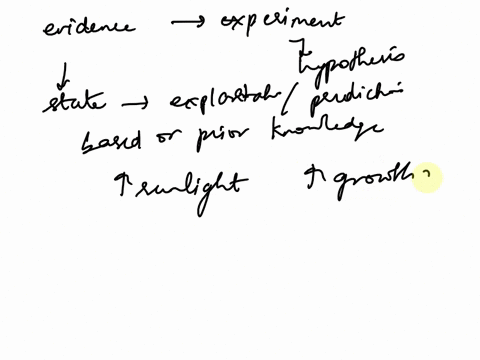 evidence → experiment
hypothesis
state → explanation / prediction
based or prior knowledge
↑ sunlight ↑ growth